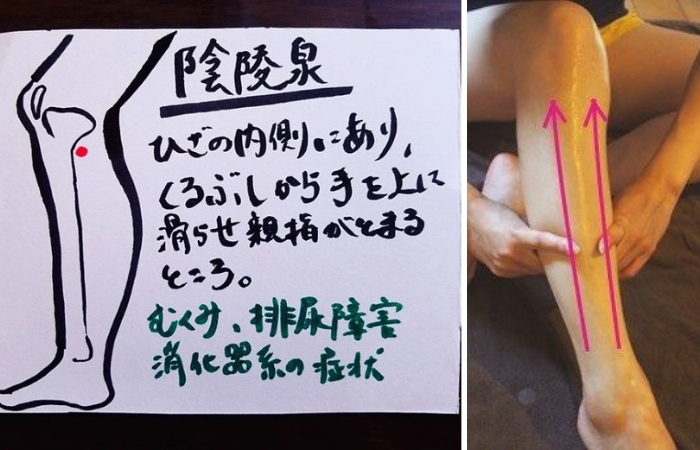 陰陵泉
ひざの内側にあり、
くるぶしから手を上に
滑らせ親指がとまる
ところ。
むくみ、排尿障害
消化器系の症状